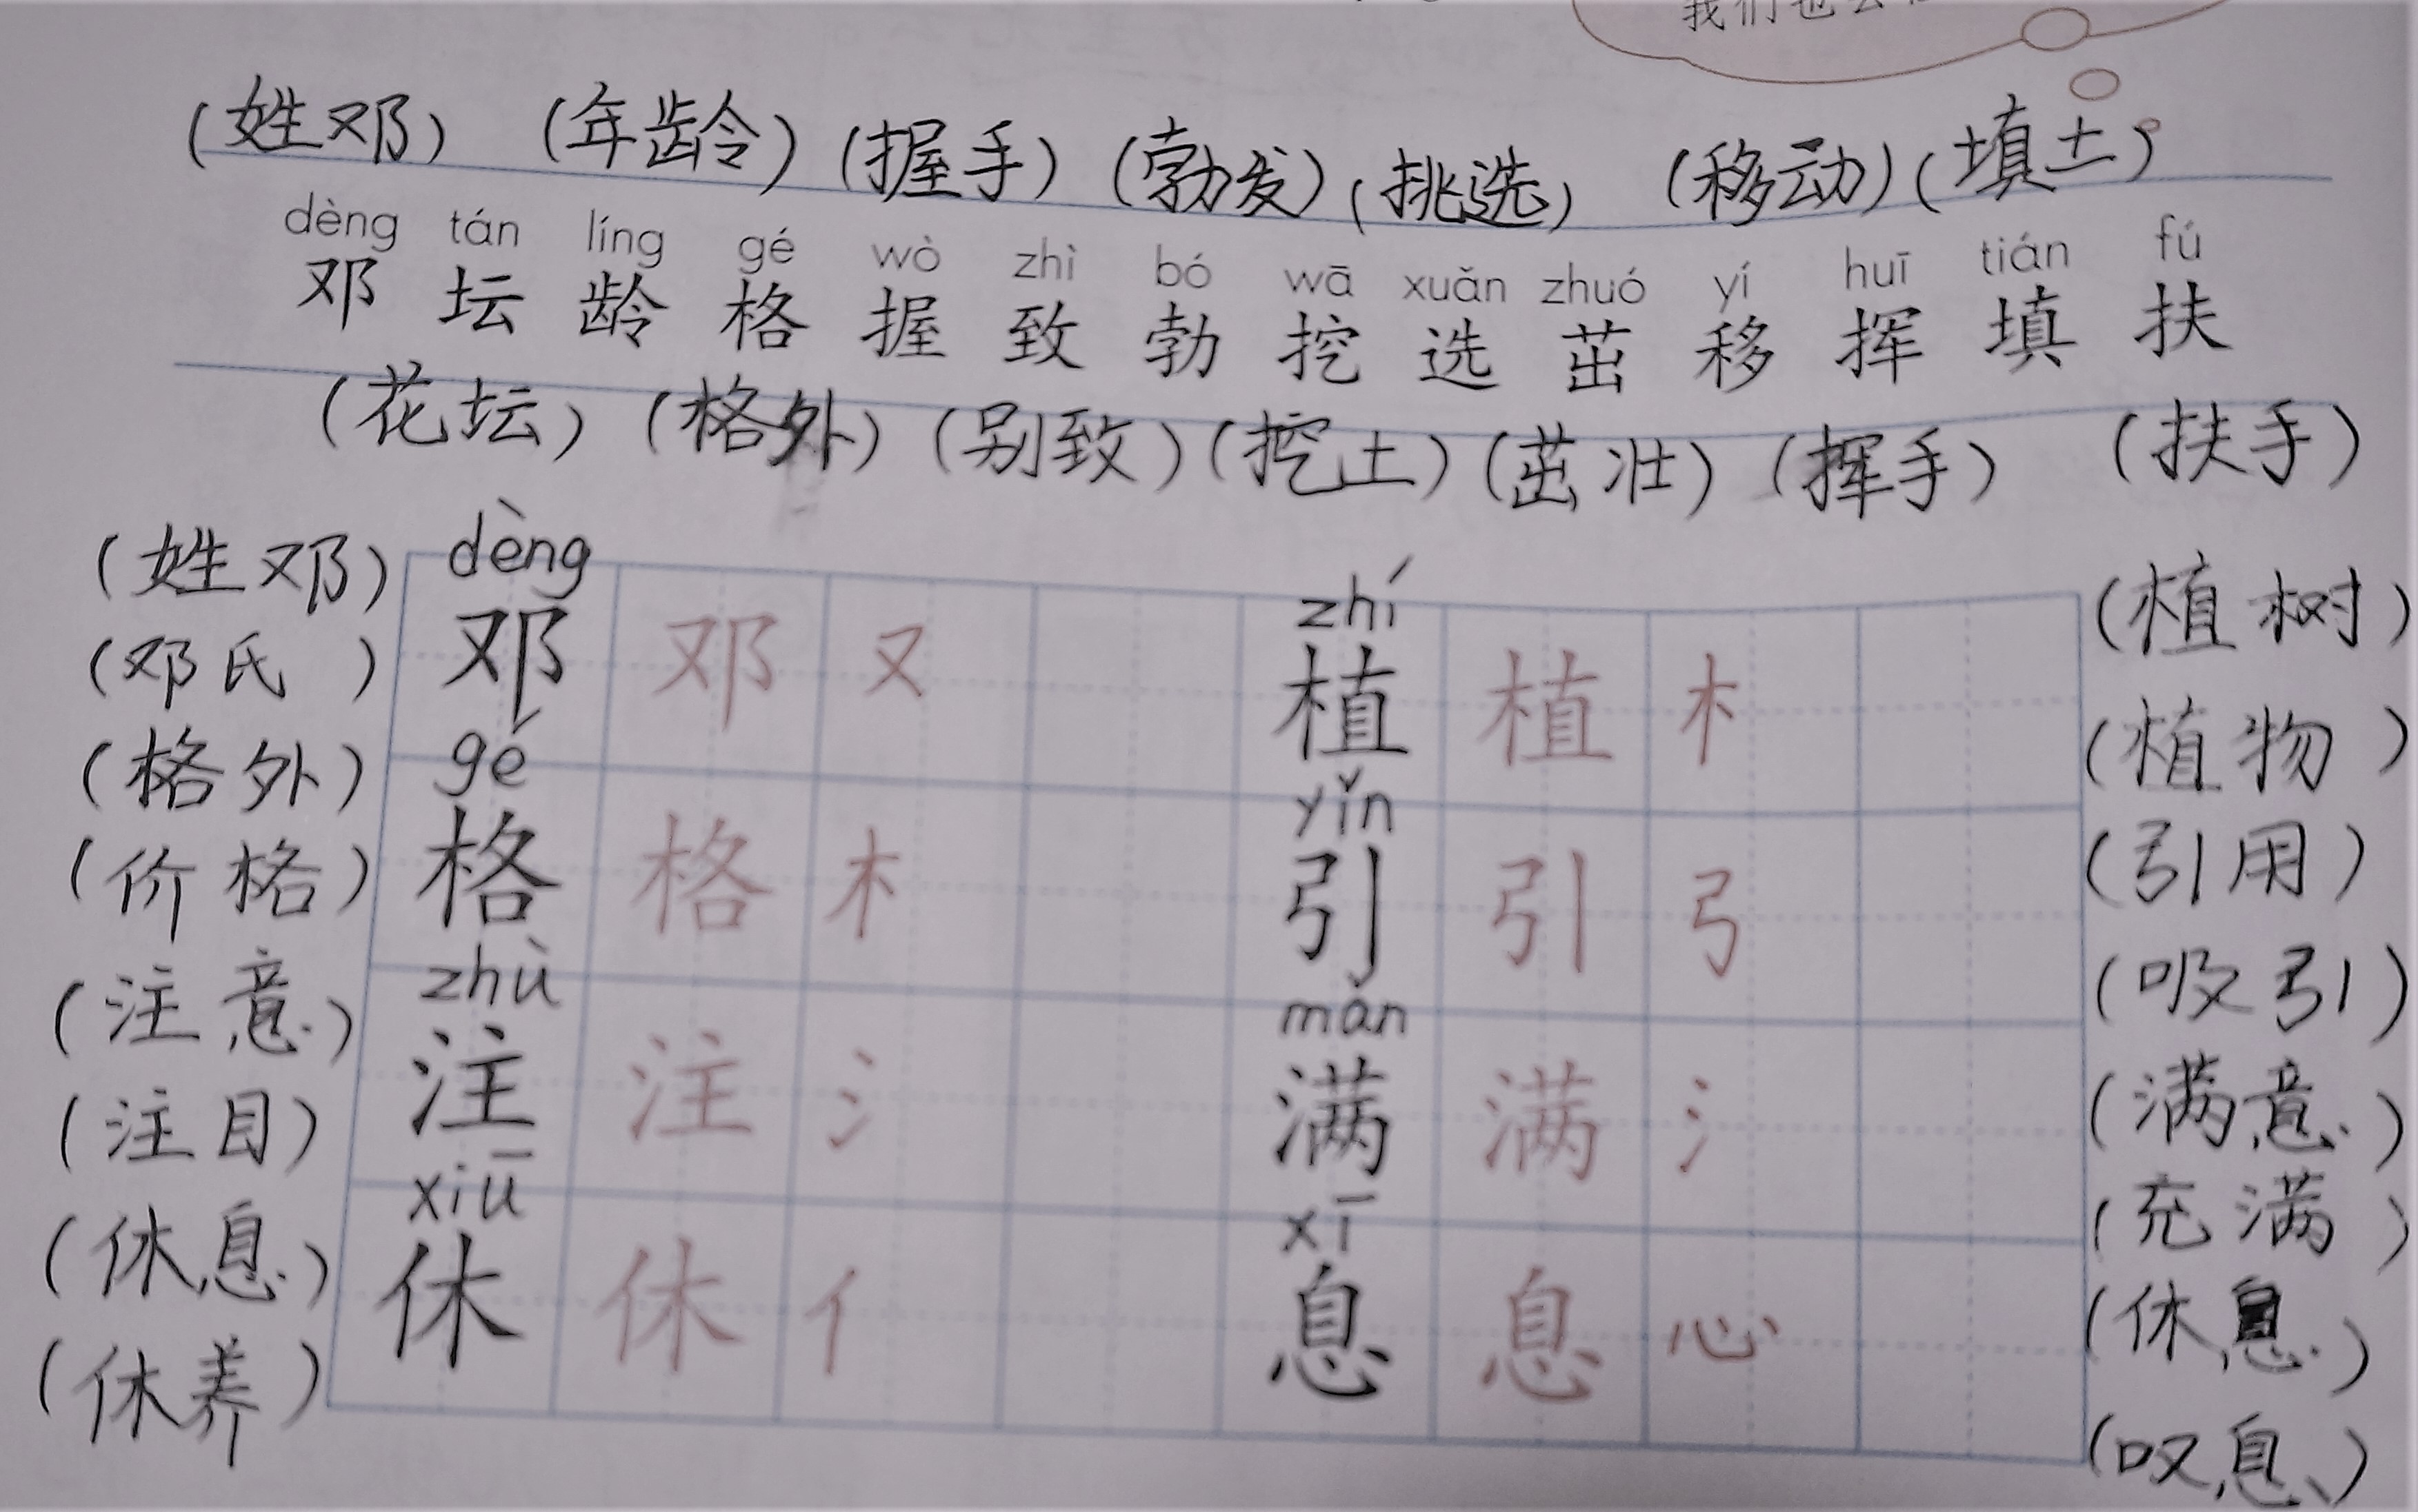 我们也会
(姓邓) (年龄) (握手) (勃发) (挑选) (移动) (填土)
dèng tán líng gé wò zhì bó wā xuǎn zhuó yí huī tián fú
邓 坛 龄 格 握 致 勃 挖 选 茁 移 挥 填 扶
(花坛) (格外) (别致) (挖土) (茁壮) (挥手) (扶手)
dèng zhí
(姓邓) 邓 邓 又 植 植 木 (植树)
(邓氏) (植物)
gé yǐn
(格外) 格 格 木 引 引 弓 (引用)
(价格) (吸引)
zhù mǎn
(注意) 注 注 氵 满 满 氵 (满意)
(注目) (充满)
xiū xī
(休息) 休 休 亻 息 息 心 (休息)
(休养) (叹息)